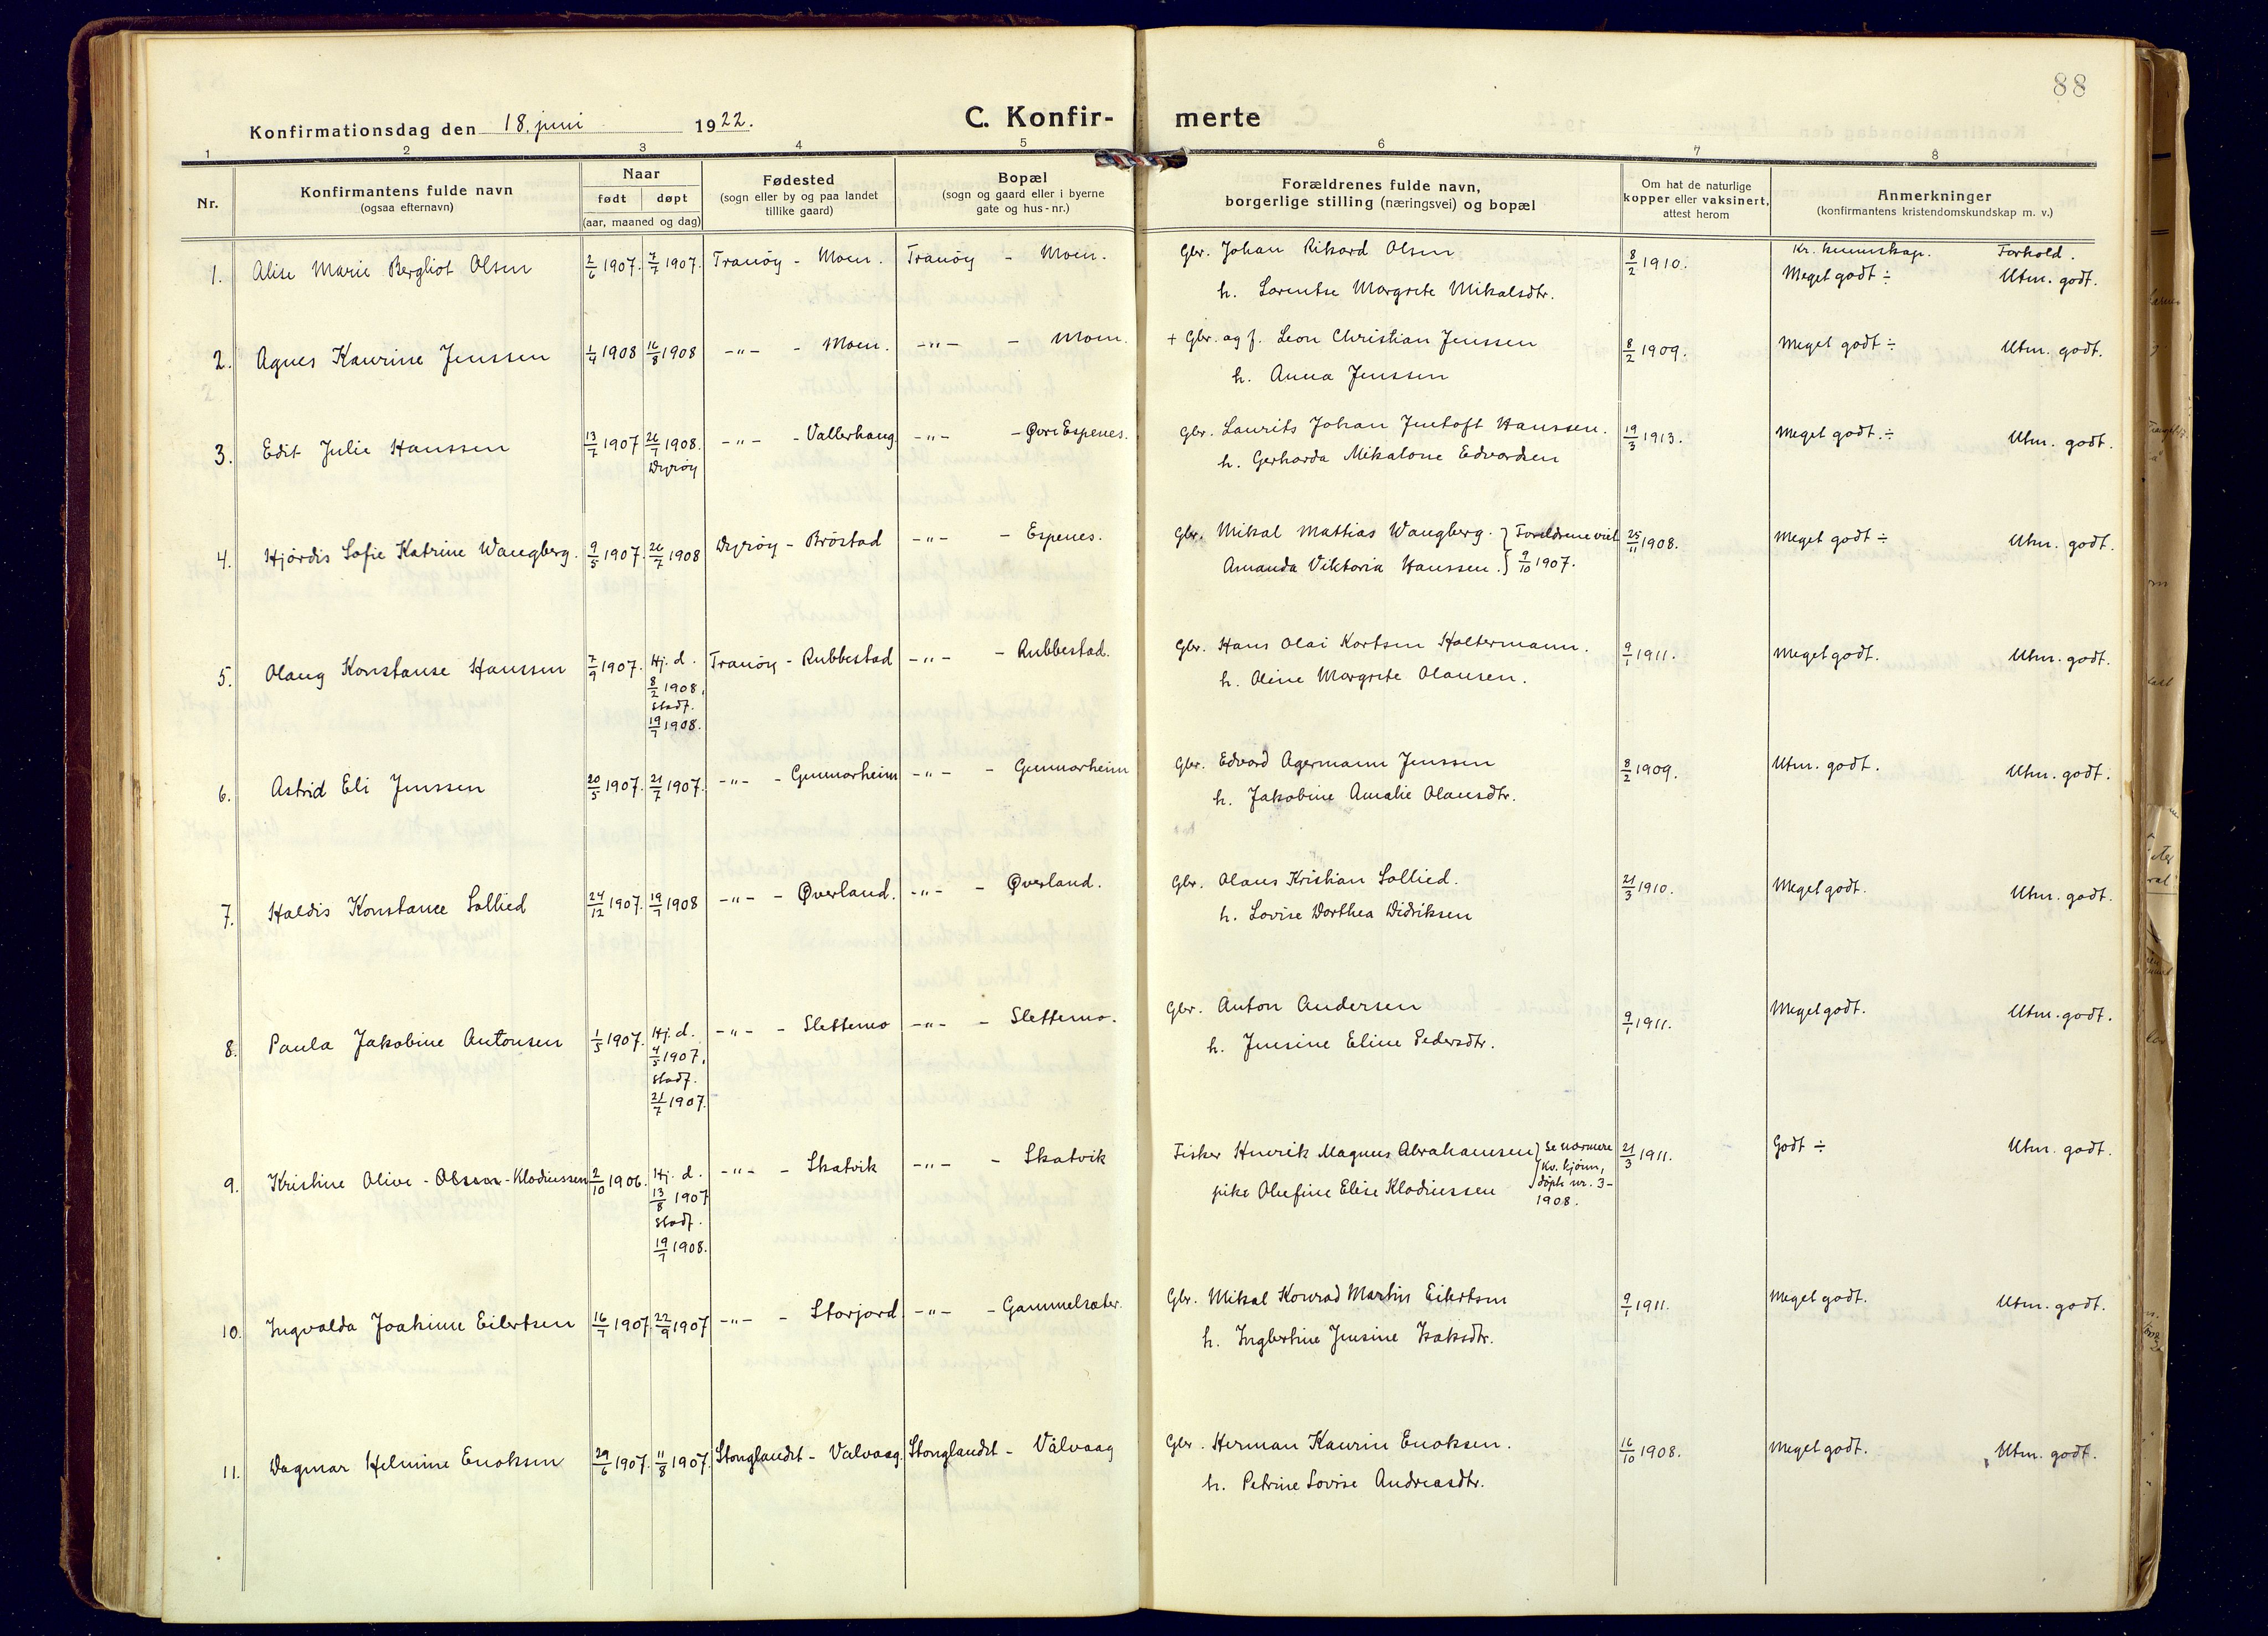 88
Konfirmationsdag den 18. juni 1922. C. Konfir- merte
1 2 3 4 5 6 7 8
Nr.
Konfirmantens fulde navn
(ogsaa efternavn)
Naar
født døpt
(aar, maaned og dag)
Fødested
(sogn eller by og paa landet
tillike gaard)
Bopæl
(sogn og gaard eller i byerne
gate og hus-nr.)
Forældrenes fulde navn,
borgerlige stilling (næringsvei) og bopæl
Om hat de naturlige
kopper eller vaksinert,
attest herom
Anmerkninger
(konfirmantens kristendomskundskap m. v.)
Kr. kunnskap. Forhold.
1. Alise Marie Bergliot Olsen 2/6 1907. 7/7 1907. Tranöy - Moen. Tranöy - Moen. Gbr. Johan Rikard Olsen 8/2 1910. Meget godt ÷ Utm. godt.
h. Lorentse Margrete Mikalsdtr.
2. Agnes Kaurine Jenssen 1/4 1908 16/8 1908 -"- - Moen. -"- - Moen. + Gbr. og f. Leon Christian Jenssen 8/2 1909. Meget godt ÷ Utm. godt.
h. Anna Jenssen
3. Edit Julie Hanssen 13/7 1907 26/7 1908. -"- - Vallerhaug -"- - Øvre Espenes. Gbr. Laurits Johan Jentoft Hanssen. 19/3 1913. Meget godt. ÷ Utm. godt.
Dyröy
h. Gerharda Mikaline Edvardsen
4. Hjördis Sofie Katrine Wangberg. 9/5 1907. 26/7 1908 Dyröy - Bröstad -"- - Espenes. Gbr. Mikal Mattias Wangberg. } Foreldrene viet 25/11 1908. Meget godt ÷ Utm. godt.
Amanda Viktoria Hanssen. } 9/10 1907.
5. Olaug Konstanse Hanssen 7/9 1907. Hj. d. Tranöy - Rubbestad -"- - Rubbestad. Gbr. Hans Olai Kortsen Holtermann. 9/1 1911. Meget godt. Utm. godt.
8/2 1908,
stadf.
19/7 1908.
h. Oline Margrete Olausen.
6. Astrid Eli Jenssen 20/5 1907. 21/7 1907. -"- - Gunnarheim -"- - Gunnarheim Gbr. Edvard Agermann Jenssen 8/2 1909. Utm. godt. Utm. godt.
h. Jakobine Amalie Olausdtr.
7. Haldis Konstance Sollied 24/12 1907. 19/7 1908 -"- - Øverland. -"- - Øverland. Gbr. Olaus Kristian Sollied. 21/3 1910. Meget godt. Utm. godt.
h. Lovise Dorthea Didriksen
8. Paula Jakobine Antonsen 1/5 1907. Hj. d. -"- - Slettemo -"- - Slettemo. Gbr. Anton Andersen 9/1 1911. Meget godt. Utm. godt.
4/5 1907,
stadf.
21/7 1907.
h. Jensine Eline Pedersdtr.
9. Kristine Olive - Olsson - Klodiussen 2/10 1906. Hj. d. -"- - Skatvik -"- - Skatvik Fisker Henrik Magnus Abrahamsen } Se nærmere 21/3 1911. Godt ÷ Utm. godt.
13/8 1907
stadf.
19/7 1908.
pike Olufine Elise Klodiussen } Kv. kjönn,
döpte nr. 3-
1908.
10. Ingvalda Joakime Eilertsen 16/7 1907. 22/9 1907 -"- - Storjord. -"- - Gammelsæter. Gbr. Mikal Konrad Martin Eilertsen 9/1 1911. Meget godt. Utm. godt.
h. Inglertine Jensine Isaksdtr.
11. Dagmar Helmine Enoksen 29/6 1907. 11/8 1907. Stonglandet - Valvaag. Stonglandet - Vålvaag Gbr. Herman Kaurin Enoksen. 16/10 1908. Meget godt. Utm. godt.
h. Petrine Lovise Andreasdtr.